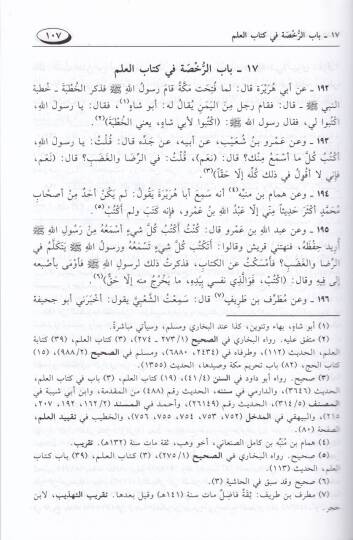 ١٧ ـ باب الرُّخْصَة في كتاب العلم
١٠٧
١٧ ـ باب الرُّخْصَة في كتاب العلم
١٩٢ ـ عن أبي هُرَيْرَة قال: لما فُتِحَتْ مَكَّةُ قامَ رسولُ اللهِ ﷺ فذكر الخُطْبَةَ ـ خُطْبَة
النبي ﷺ ـ قال: فقام رجل مِنَ اليَمَنِ يُقالُ له: أبو شاهٍ(١)، فقال: يا رسولَ اللهِ،
اكتُبُوا لي، فقال رسول الله ﷺ: (اكْتُبُوا لأبي شاهٍ، يعني الخُطْبَةَ)(٢).
١٩٣ ـ وعن عمرو بن شُعَيبٍ، عن أبيه، عن جَدِّه قال: قُلْتُ: يا رسول اللهِ،
أَكْتُبُ كُلَّ ما أَسْمَعُ مِنْكَ؟ قال: (نَعَم)، قُلْتُ: في الرِّضَا والغَضَبِ؟ قال: (نَعَم،
فإني لا أَقُولُ في ذلك كُلِّهِ إلَّا حَقّاً)(٣).
١٩٤ ـ وعن همام بن مُنَبِّه(٤) أنه سَمِعَ أبا هُرَيْرَةَ يَقُولُ: لم يَكُنْ أحَدٌ مِنْ أصْحَابِ
مُحَمَّدٍ أَكْثَرَ حَدِيثاً مِنِّي إلَّا عَبْدُ اللهِ بْنُ عَمْرو، فإنه كَتَبَ ولم أَكْتُبْ(٥).
١٩٥ ـ وعن عبد الله بن عَمْرو قال: كُنْتُ أَكْتُبُ كُلَّ شَيءٍ أَسْمَعُهُ مِنْ رَسُولِ اللهِ ﷺ
أُرِيد حِفْظَهُ، فنهتني قريش وقالوا: أتَكْتُبُ كُلَّ شَيءٍ تَسْمَعُهُ ورسولُ اللهِ ﷺ يَتَكَلَّمُ في
الرِّضا والغَضَبِ؟ فأمْسَكْتُ عن الكتاب، فذكرتُ ذلك لرسولِ اللهِ ﷺ فأوْمَى بأصْبعه
إلى فِيهِ وقال: (اكْتُبْ، فَوَالَّذِي نَفْسي بِيَدِهِ، ما يَخْرُجُ منه إلَّا حَقٌّ)(٦).
١٩٦ ـ وعن مُطَرِّف بن طَرِيفٍ(٧) قال: سَمِعْتُ الشَّعْبِيَّ يقول: أخْبَرَني أبو جحيفة
(١) أبو شاهٍ، بهاء وتنوين، كذا عند البخاري ومسلم، وسيأتي مباشرةً.
(٢) متفق عليه. رواه البخاري في الصحيح (٢٧٣/١ ـ ٢٧٤)، (٣) كتاب العلم، (٣٩) كتابة
العلم، الحديث (١١٢)، وطرفاه في (٢٤٣٤، ٦٨٨٠)، ومسلم في الصحيح (٩٨٨/٢)، (١٥)
كتاب الحج، (٨٢) باب تحريم مكة وصيدها، الحديث (١٣٥٥).
(٣) صحيح. رواه أبو داود في السنن (٤١/٤)، (١٩) كتاب العلم، (٣) باب في كتاب العلم،
الحديث (٣٦٤٦)، والدارمي في سننه، الحديث رقم (٤٨٨) من المقدمة، وابن أبي شيبة في
المصنف (٣١٤/٥)، الحديث رقم (٢٦٤١٩)، وأحمد في المسند (١٦٢/٢، ١٩٢، ٢٠٧،
٢١٥)، والبيهقي في المدخل (٧٥٢، ٧٥٣، ٧٥٤، ٧٥٥، ٧٥٦)، والخطيب في تقييد العلم،
الصفحة (٨٠).
(٤) همام بن مُنَبِّه بن كامل الصنعاني، أخو وهب، ثقة مات سنة (١٣٢هـ). تقريب.
(٥) صحيح. رواه البخاري في الصحيح (٢٧٥/١)، (٣) كتاب العلم، (٣٩) باب كتاب
العلم، الحديث (١١٣).
(٦) صحيح وقد سبق في الحاشية (٣).
(٧) مطرف بن طريف: ثِقَةٌ فَاضِلٌ مات سنة (١٤١هـ) وقيل بعدها. تقريب التهذيب، لابن
حجر.